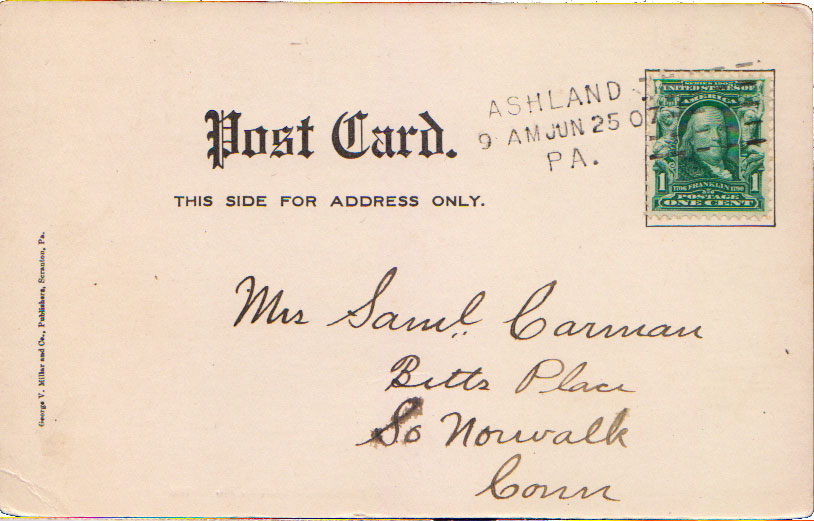 Post Card.
THIS SIDE FOR ADDRESS ONLY.
ASHLAND
9 AM JUN 25 07
PA.
SERIES 1902
UNITED STATES OF
AMERICA
1 1706 FRANKLIN 1790 1
POSTAGE
ONE CENT
George V. Millar and Co., Publishers, Scranton, Pa.
Mrs Saml. Carman
Betts Place
So Norwalk
Conn